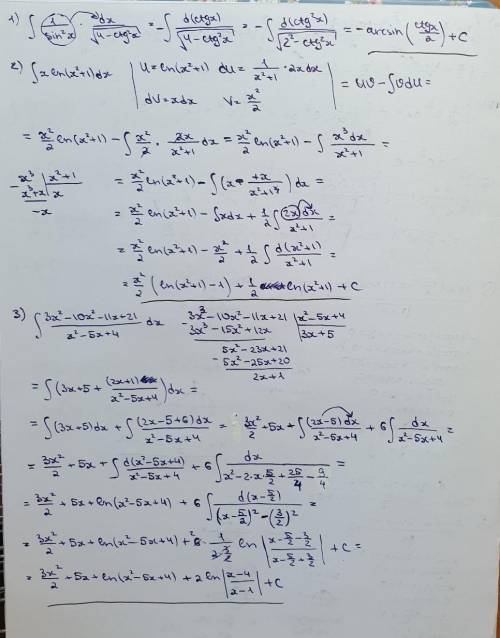 1) ∫ 1/sin²x · dx/√(4-ctg²x) = -∫ d(ctgx)/√(4-ctg²x) = -∫ d(ctg²x)/√(2²-ctg²x) = -arcsin(ctgx/2) + C
2) ∫ x ln(x²+1)dx | u = ln(x²+1) du = 1/(x²+1) · 2x dx | = uv - ∫vdu =
dV = xdx V = x²/2
= x²/2 ln(x²+1) - ∫ x²/2 · 2x/(x²+1) dx = x²/2 ln(x²+1) - ∫ x³dx/(x²+1) =
- x³ | x²+1
x³+x | x
-x
= x²/2 ln(x²+1) - ∫(x + -x/(x²+1)) dx =
= x²/2 ln(x²+1) - ∫xdx + 1/2 ∫ 2x dx/(x²+1) =
= x²/2 ln(x²+1) - x²/2 + 1/2 ∫ d(x²+1)/(x²+1) =
= x²/2 (ln(x²+1) - 1) + 1/2 ln(x²+1) + C
3) ∫ (3x³-10x²-11x+21)/(x²-5x+4) dx - 3x³-10x²-11x+21 | x²-5x+4
3x³-15x²+12x | 3x+5
5x²-23x+21
- 5x²-25x+20
2x+1
= ∫(3x+5 + (2x+1)/(x²-5x+4)) dx =
= ∫(3x+5)dx + ∫ (2x-5+6)dx/(x²-5x+4) = 3x²/2 + 5x + ∫ (2x-5)dx/(x²-5x+4) + 6∫ dx/(x²-5x+4) =
= 3x²/2 + 5x + ∫ d(x²-5x+4)/(x²-5x+4) + 6∫ dx/(x²-2·x·5/2+25/4-9/4) =
= 3x²/2 + 5x + ln(x²-5x+4) + 6∫ d(x-5/2)/((x-5/2)²-(3/2)²) =
= 3x²/2 + 5x + ln(x²-5x+4) + 6 · 1/(2·3/2) ln|(x-5/2-3/2)/(x-5/2+3/2)| + C =
= 3x²/2 + 5x + ln(x²-5x+4) + 2 ln|(x-4)/(x-1)| + C